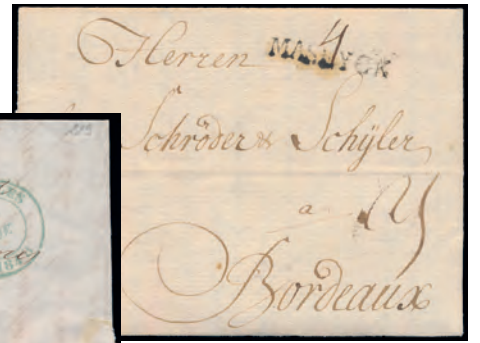 Herren
4
MASEYCK
Schröder & Schÿler
a
Bordeaux